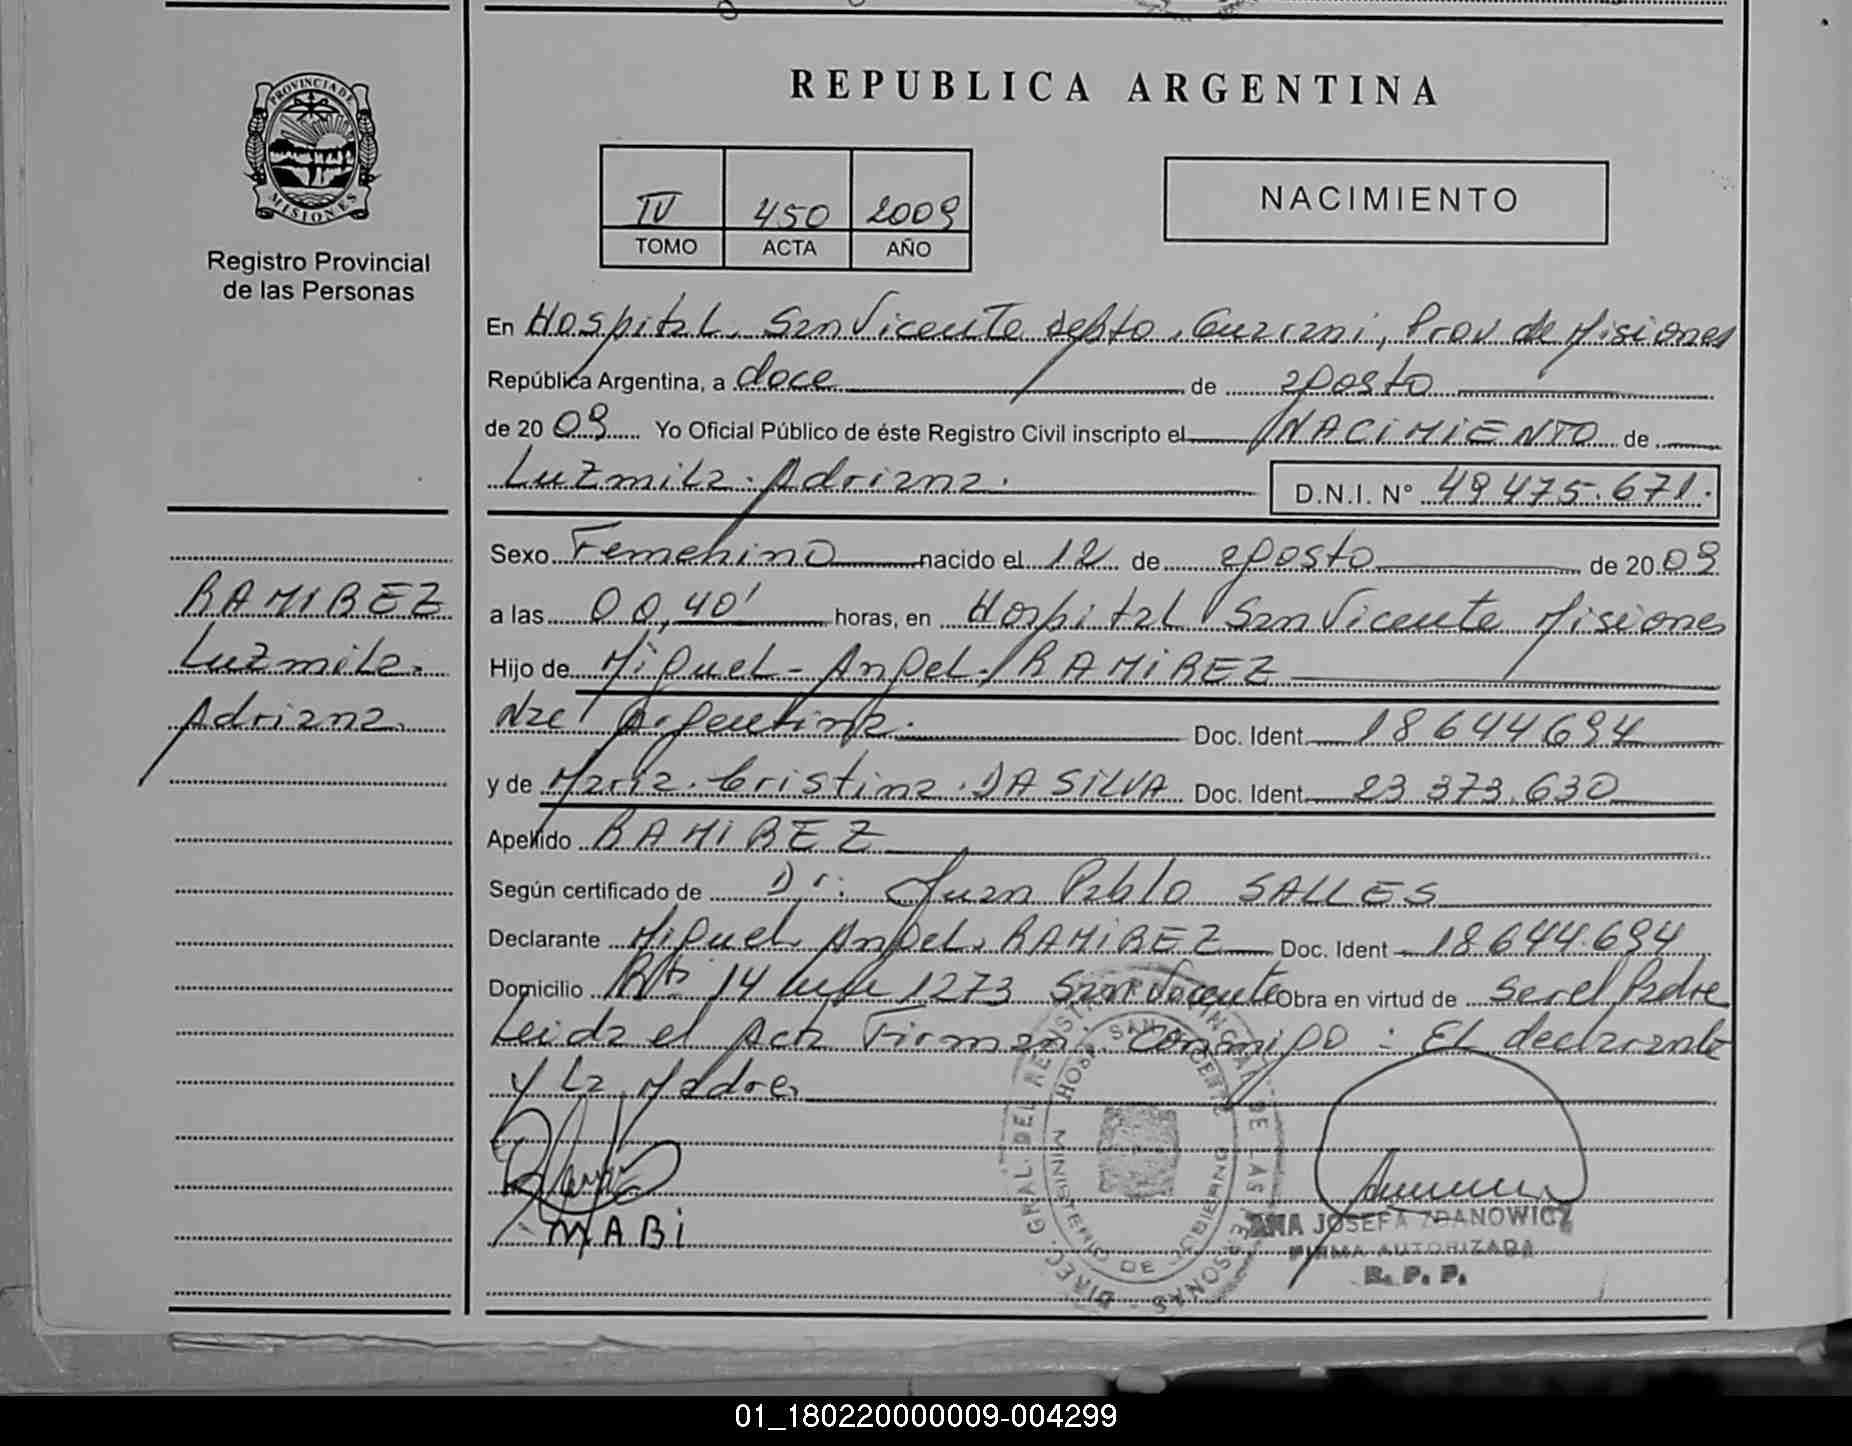 REPUBLICA ARGENTINA
PROVINCIA DE
MISIONES
Registro Provincial
de las Personas
IV 450 2009
TOMO ACTA AÑO
NACIMIENTO
En Hospital San Vicente depto. Guarani, Prov de Misiones
República Argentina, a doce de agosto
de 2009 Yo Oficial Público de éste Registro Civil inscripto el NACIMIENTO de
Luzmila Adriana. D.N.I. N° 49.475.671.
Sexo Femenino nacido el 12 de agosto de 2009
a las 00,40' horas, en Hospital San Vicente Misiones
Hijo de Miguel Angel RAMIREZ
Nac Argentina. Doc. Ident. 18644694
y de Maria Cristina DA SILVA Doc. Ident. 23.373.630
Apellido RAMIREZ
Según certificado de Dr. Juan Pablo SALLES
Declarante Miguel Angel RAMIREZ Doc. Ident 18.644.694
Domicilio 14 1273 San Vicente Obra en virtud de ser el Padre
Leida el Acta Firman Conmigo : El declarante
y La Madre.
RAMIREZ
Luzmila
Adriana
MABi
DIREC. GRAL. DEL REGISTRO PROVINCIAL DE LAS PERSONAS
HOSP. SAN VICENTE
MINISTERIO DE GOBIERNO
ANA JOSEFA ZDANOWICZ
FIRMA AUTORIZADA
R. P. P.
01_180220000009-004299